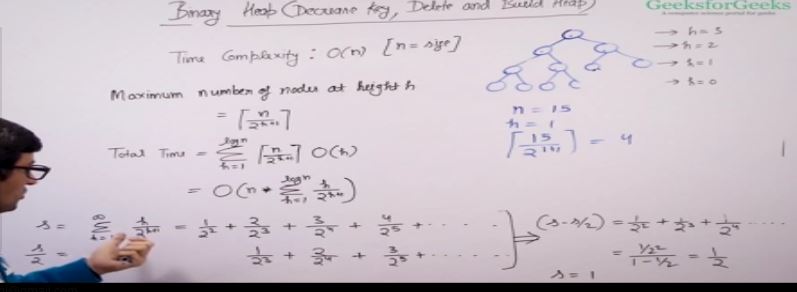 Binary Heap (Decrease Key, Delete and Build Heap)
GeeksforGeeks
A computer science portal for geeks
Time Complexity : O(n) [n = size]
→ h = 3
→ h = 2
→ h = 1
→ h = 0
Maximum number of nodes at height h
= ⌈n/2^(h+1)⌉
n = 15
h = 1
⌈15/2^(1+1)⌉ = 4
Total Time = Σ_(h=1)^(log n) ⌈n/2^(h+1)⌉ O(h)
= O(n * Σ_(h=1)^(log n) h/2^(h+1))
s = Σ^∞ h/2^(h+1) = 1/2^2 + 2/2^3 + 3/2^4 + 4/2^5 + .....
s/2 = 1/2^3 + 2/2^4 + 3/2^5 + .....
⇒ (s - s/2) = 1/2^2 + 1/2^3 + 1/2^4 .....
= (1/2^2)/(1 - 1/2) = 1/2
s = 1